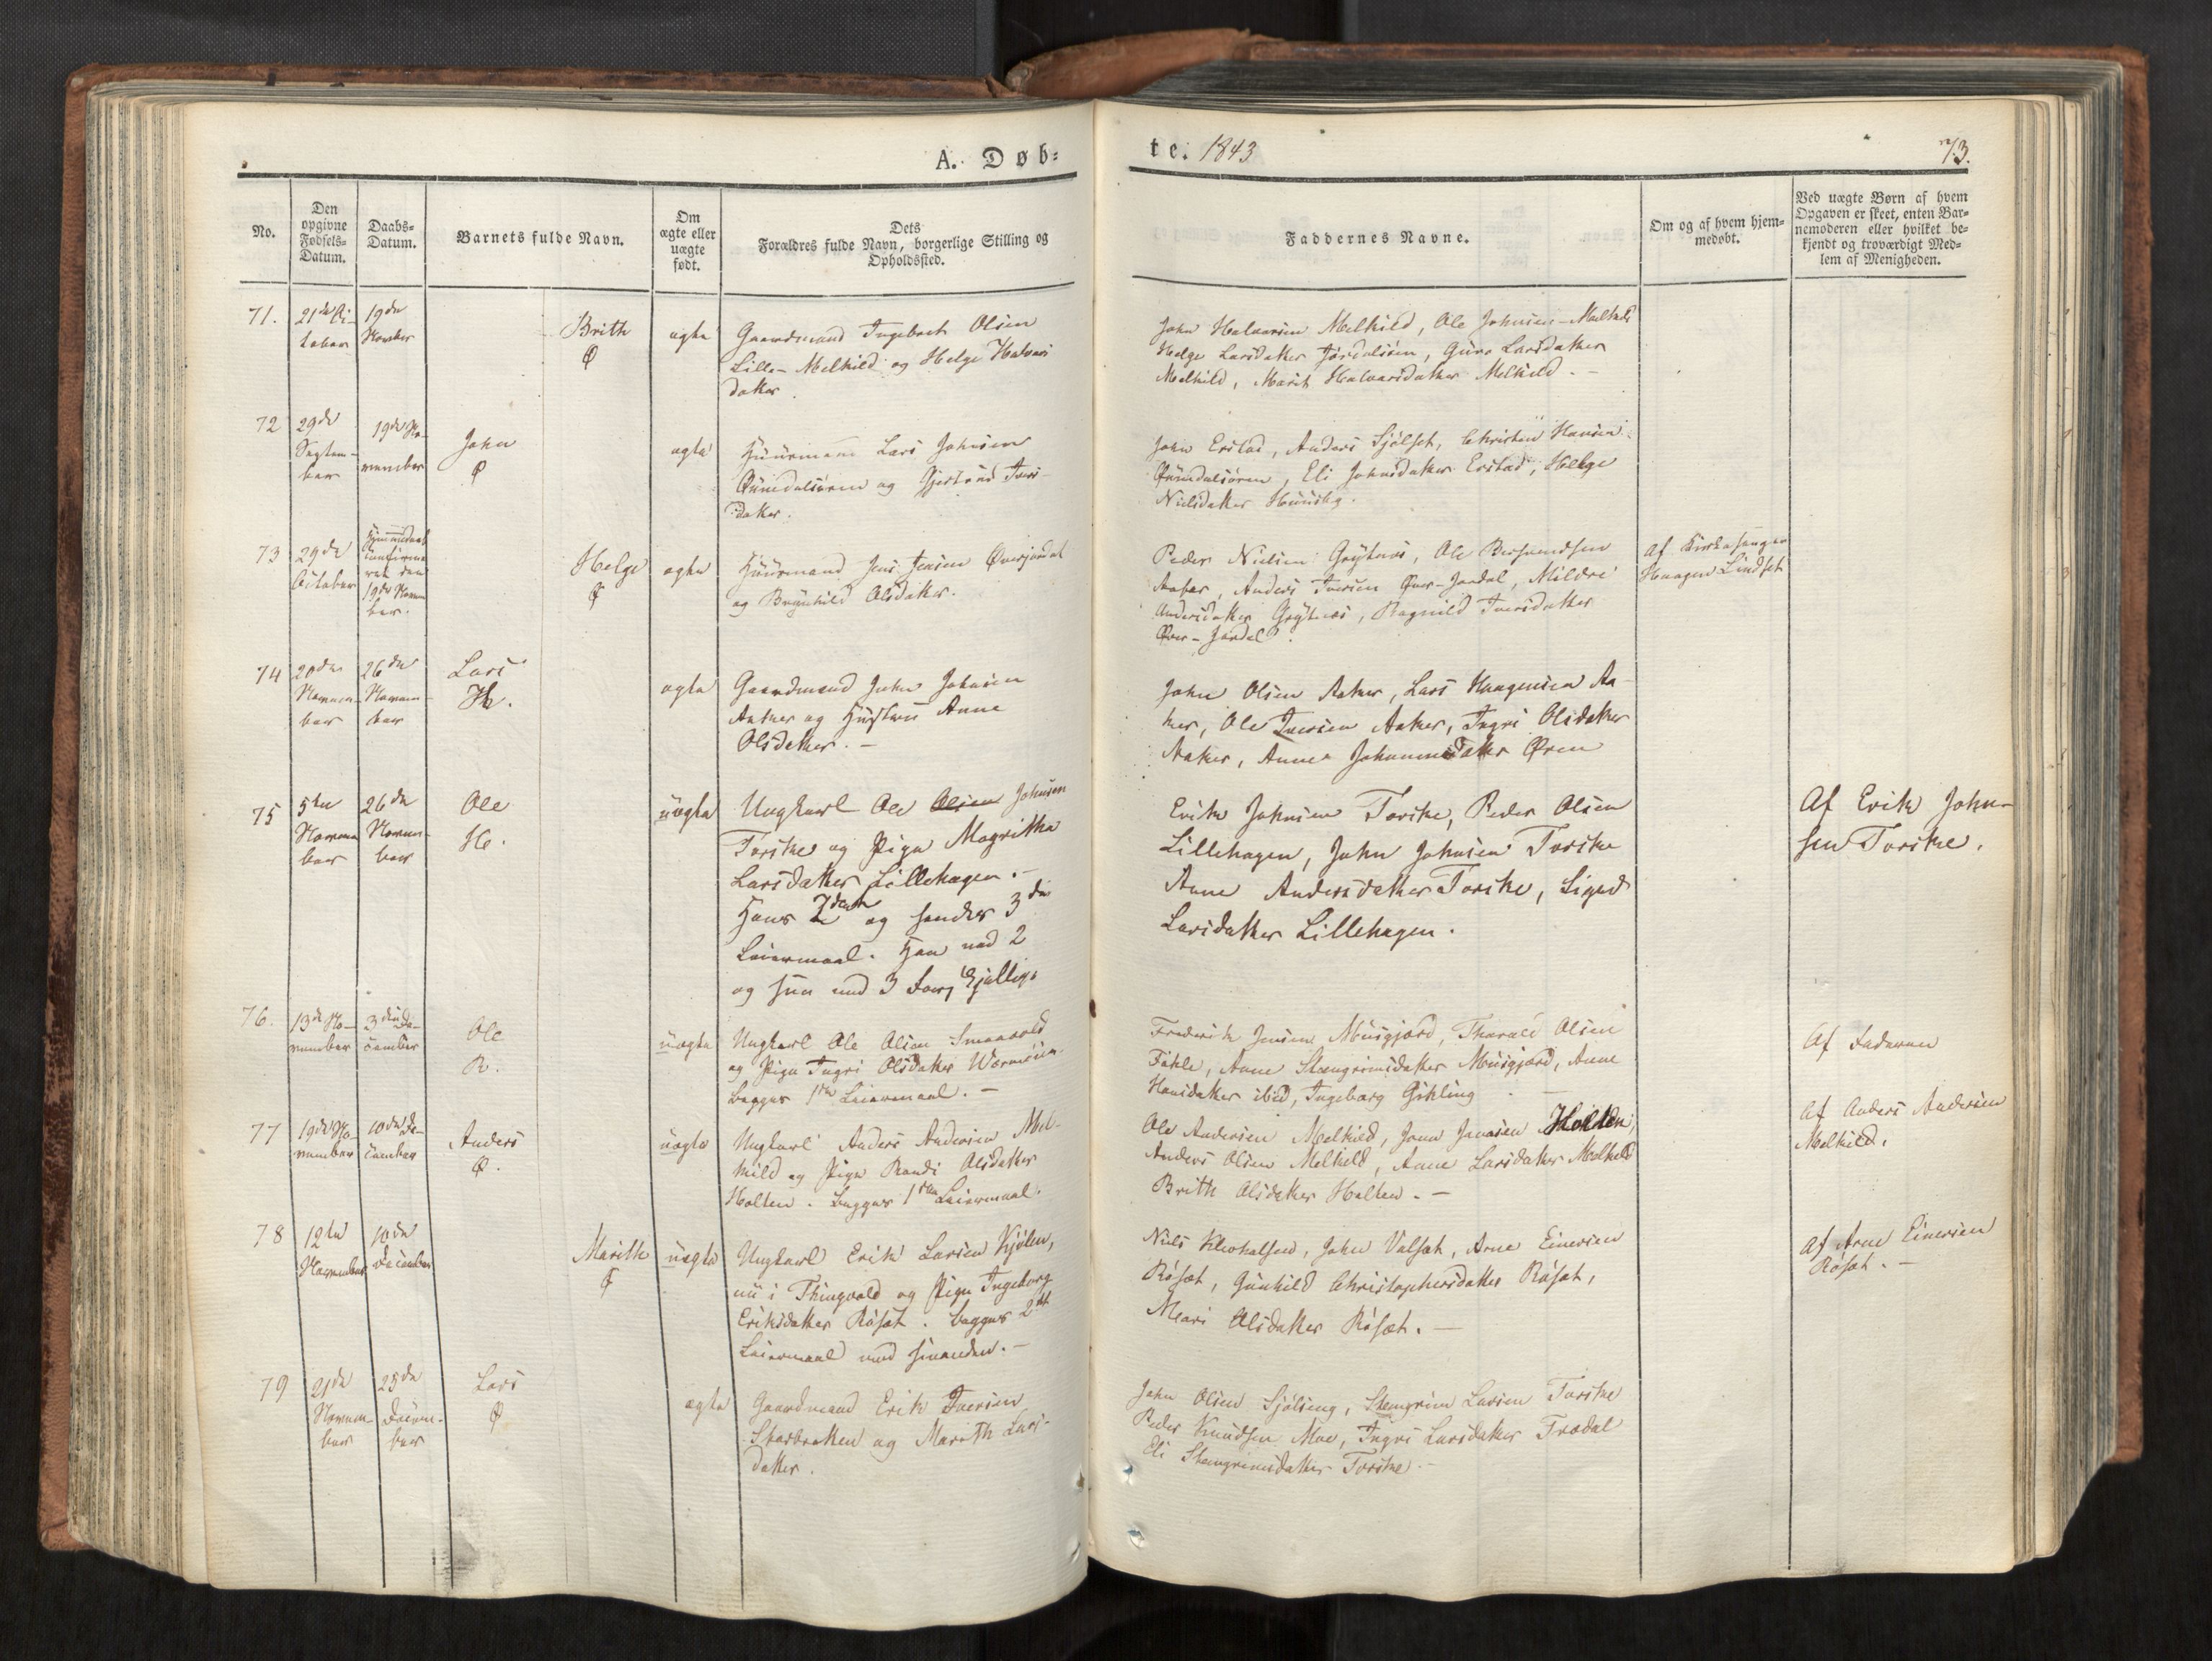 A. Døb=
te. 1843
73.
No.
Den opgivne Fødsels=Datum.
Daabs=Datum.
Barnets fulde Navn.
Om ægte eller uægte født.
Dets Forældres fulde Navn, borgerlige Stilling og Opholdssted.
Faddernes Navne.
Om og af hvem hjem=medøbt.
Ved uægte Børn af hvem
Opgaven er skeet, enten Bar=
nemoderen eller hvilket be=
kjendt og troværdigt Med=
lem af Menigheden.
71.
21de Oc-
tober
19de
Novber
Brith
Ø
ægte
Gaardmand Ingebret Olsen
Lille-Melkild og Helge Halvors
datter
John Halvorsen Melkild, Ole Johnsen Melkild
Helge Larsdatter Jordalsøren, Guro Larsdatter
Melkild, Marit Halvorsdatter Melkild. -
72
29de
Septem-
ber
19de No-
vember
John
Ø
ægte
Huusmand Lars Johnsen
og Gjertrud Iver-
datter.
John Erstad, Anders Sjølset, Christen Hansen
Eli Johnsdatter Erstad, Helge
Nielsdatter Huusby.
73
29de
October
confirme
ret den
19de Novem
ber.
Helge
Ø
ægte
Huusmand Jens Jensen Øverjordal
og Brynhild Olsdatter.
Peder Nielsen Grytnes, Ole Bersvendsen
Anders Iversen Øver-Jordal, Mildri
Andersdatter Grytnes, Ragnild Iversdatter
Øver-Jordal.
Af Kirkesanger
Haagen Lindset
74
20de
Novem-
ber
26de
Novem-
ber
Lars
H.
ægte
Gaardmand John Johnsen
Aaker og Hustru Anne
Olsdatter. -
John Olsen Aaker, Lars Haagensen Aa-
ker, Ole Iversen Aaker, Ingri Olsdatter
Aaker, Anne Johannesdatter Øren
75
5te
Novem
ber
26de
Novem-
ber
Ole
H.
uægte
Ungkarl Ole Olsen Johnsen
Torske og Pige Magrithe
Larsdatter Lillehagen. -
Hans 2det og hendes 3de
Leiermaal. Han med 2
og hun med 3
Erik Johnsen Torske, Peder Olsen
Lillehagen, John Johnsen Torske
Anne Andersdatter Torske, Siged
Larsdatter Lillehagen.
Af Erik John-
sen Torske.
76.
13de No-
vember
3die De-
cember
Ole
R.
uægte
Ungkarl Ole Olsen Smaavold
og Pige Ingri Olsdatter
begges 1ste Leiermaal. -
Frederik Jensen Muusgjerd, Tharald Olsen
Fikle, Anne Steengrimsdatter Muusgjerd, Anne
Hansdatter ibid, Ingeborg Gikling -
Af Faderen
77
19de No-
vember
10de De-
cember
Anders
Ø.
uægte
Ungkarl Anders Andersen Mel-
kild og Pige Randi Olsdatter
Holten. begges 1ste Leiermaal.
Ole Andersen Melkild, Jens Jensen Holten,
Anders Olsen Melkild, Anne Larsdatter Melkild
Brith Olsdatter Holten. -
Af Anders Andersen
Melkild.
78
12te
November
10de
December
Marith
Ø
uægte
Ungkarl Erik Larsen Kjølen,
nu i Thingvold og Pige Ingeborg
Eriksdatter Røsæt. begges 2det
Leiermaal med hinanden. -
Niels John Valsæt, Arne Einersen
Røsæt, Gunhild Christophersdatter Røsæt,
Mari Olsdatter Røsæt. -
Af Arne Einersen
Røsæt. -
79
21de
Novem-
ber
25de
Decem-
ber
Lars
Ø
ægte
Gaardmand Erik Iversen
Storbrekken og Marith Lars-
datter.
John Olsen Sjølseng, Steengrim Larsen Torske
Peder Knudsen Moe, Ingri Larsdatter Trædal
Eli Steengrimsdatter Torske. -